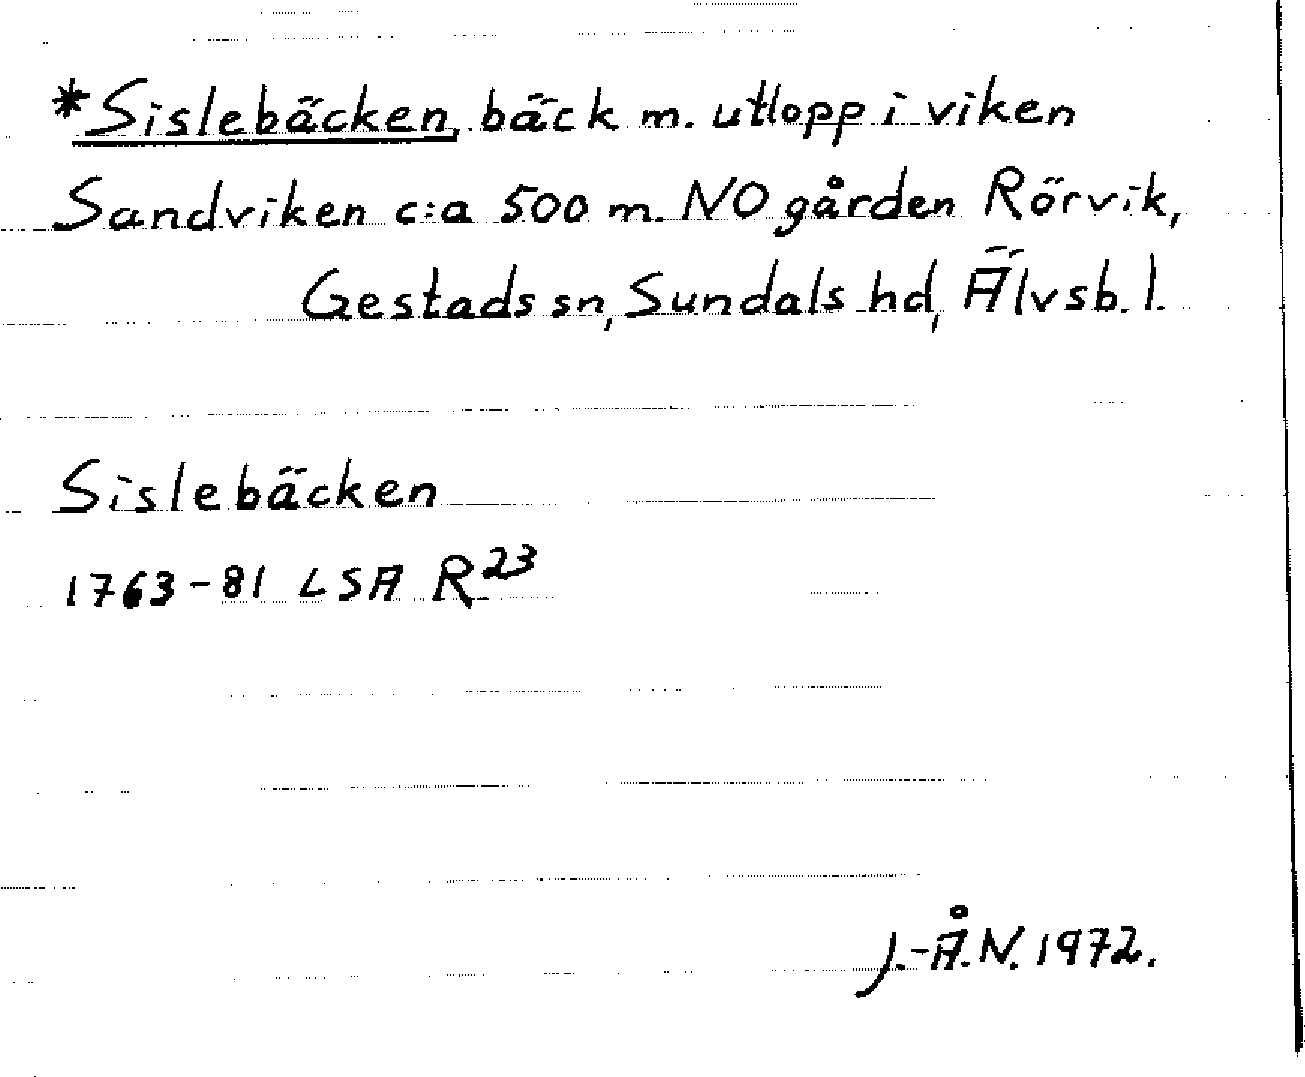 *Sislebäcken, bäck m. utlopp i viken
Sandviken c:a 500 m. NO gården Rörvik,
Gestads sn, Sundals hd, Älvsb. l.
Sislebäcken
1763-81 LSA R23
J.-Å.N. 1972.